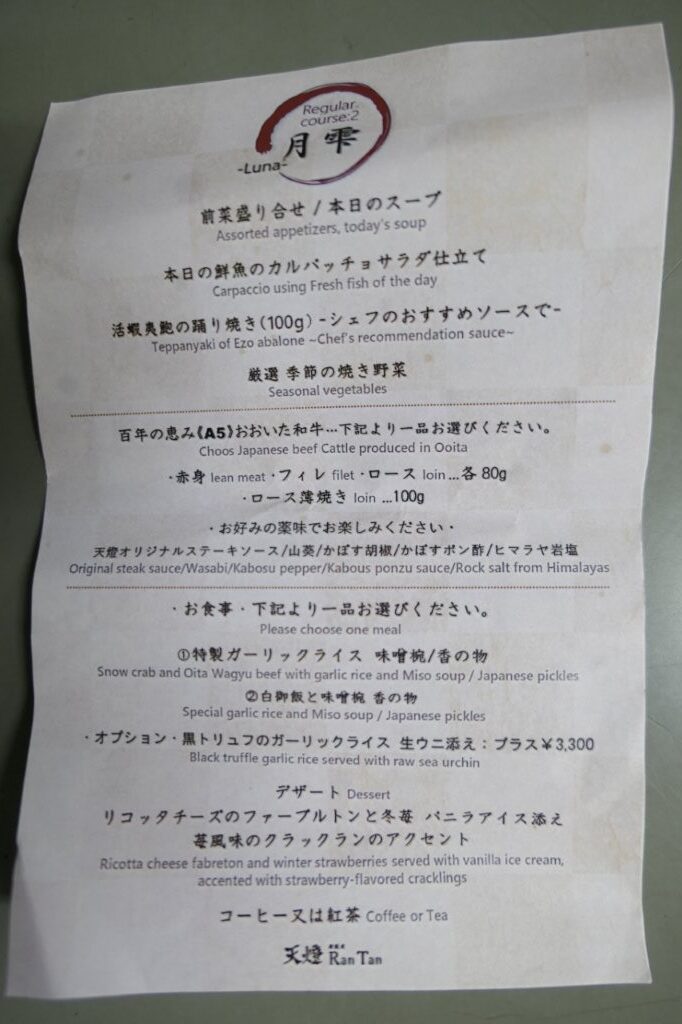 Regular
course:2
月雫
-Luna-
前菜盛り合せ / 本日のスープ
Assorted appetizers, today's soup
本日の鮮魚のカルパッチョサラダ仕立て
Carpaccio using Fresh fish of the day
活蝦夷鮑の踊り焼き(100g) -シェフのおすすめソースで-
Teppanyaki of Ezo abalone ~Chef's recommendation sauce~
厳選 季節の焼き野菜
Seasonal vegetables
百年の恵み《A5》おおいた和牛…下記より一品お選びください。
Choos Japanese beef Cattle produced in Ooita
・赤身 lean meat ・フィレ filet ・ロース loin ... 各 80g
・ロース薄焼き loin ...100g
・お好みの薬味でお楽しみください・
天燈オリジナルステーキソース/山葵/かぼす胡椒/かぼすポン酢/ヒマラヤ岩塩
Original steak sauce/Wasabi/Kabosu pepper/Kabous ponzu sauce/Rock salt from Himalayas
・お食事・下記より一品お選びください。
Please choose one meal
①特製ガーリックライス 味噌椀/香の物
Snow crab and Oita Wagyu beef with garlic rice and Miso soup / Japanese pickles
②白御飯と味噌椀 香の物
Special garlic rice and Miso soup / Japanese pickles
・オプション・黒トリュフのガーリックライス 生ウニ添え：プラス¥3,300
Black truffle garlic rice served with raw sea urchin
デザート Dessert
リコッタチーズのファーブルトンと冬苺 バニラアイス添え
苺風味のクラックランのアクセント
Ricotta cheese fabreton and winter strawberries served with vanilla ice cream,
accented with strawberry-flavored cracklings
コーヒー又は紅茶 Coffee or Tea
天燈 Ran Tan